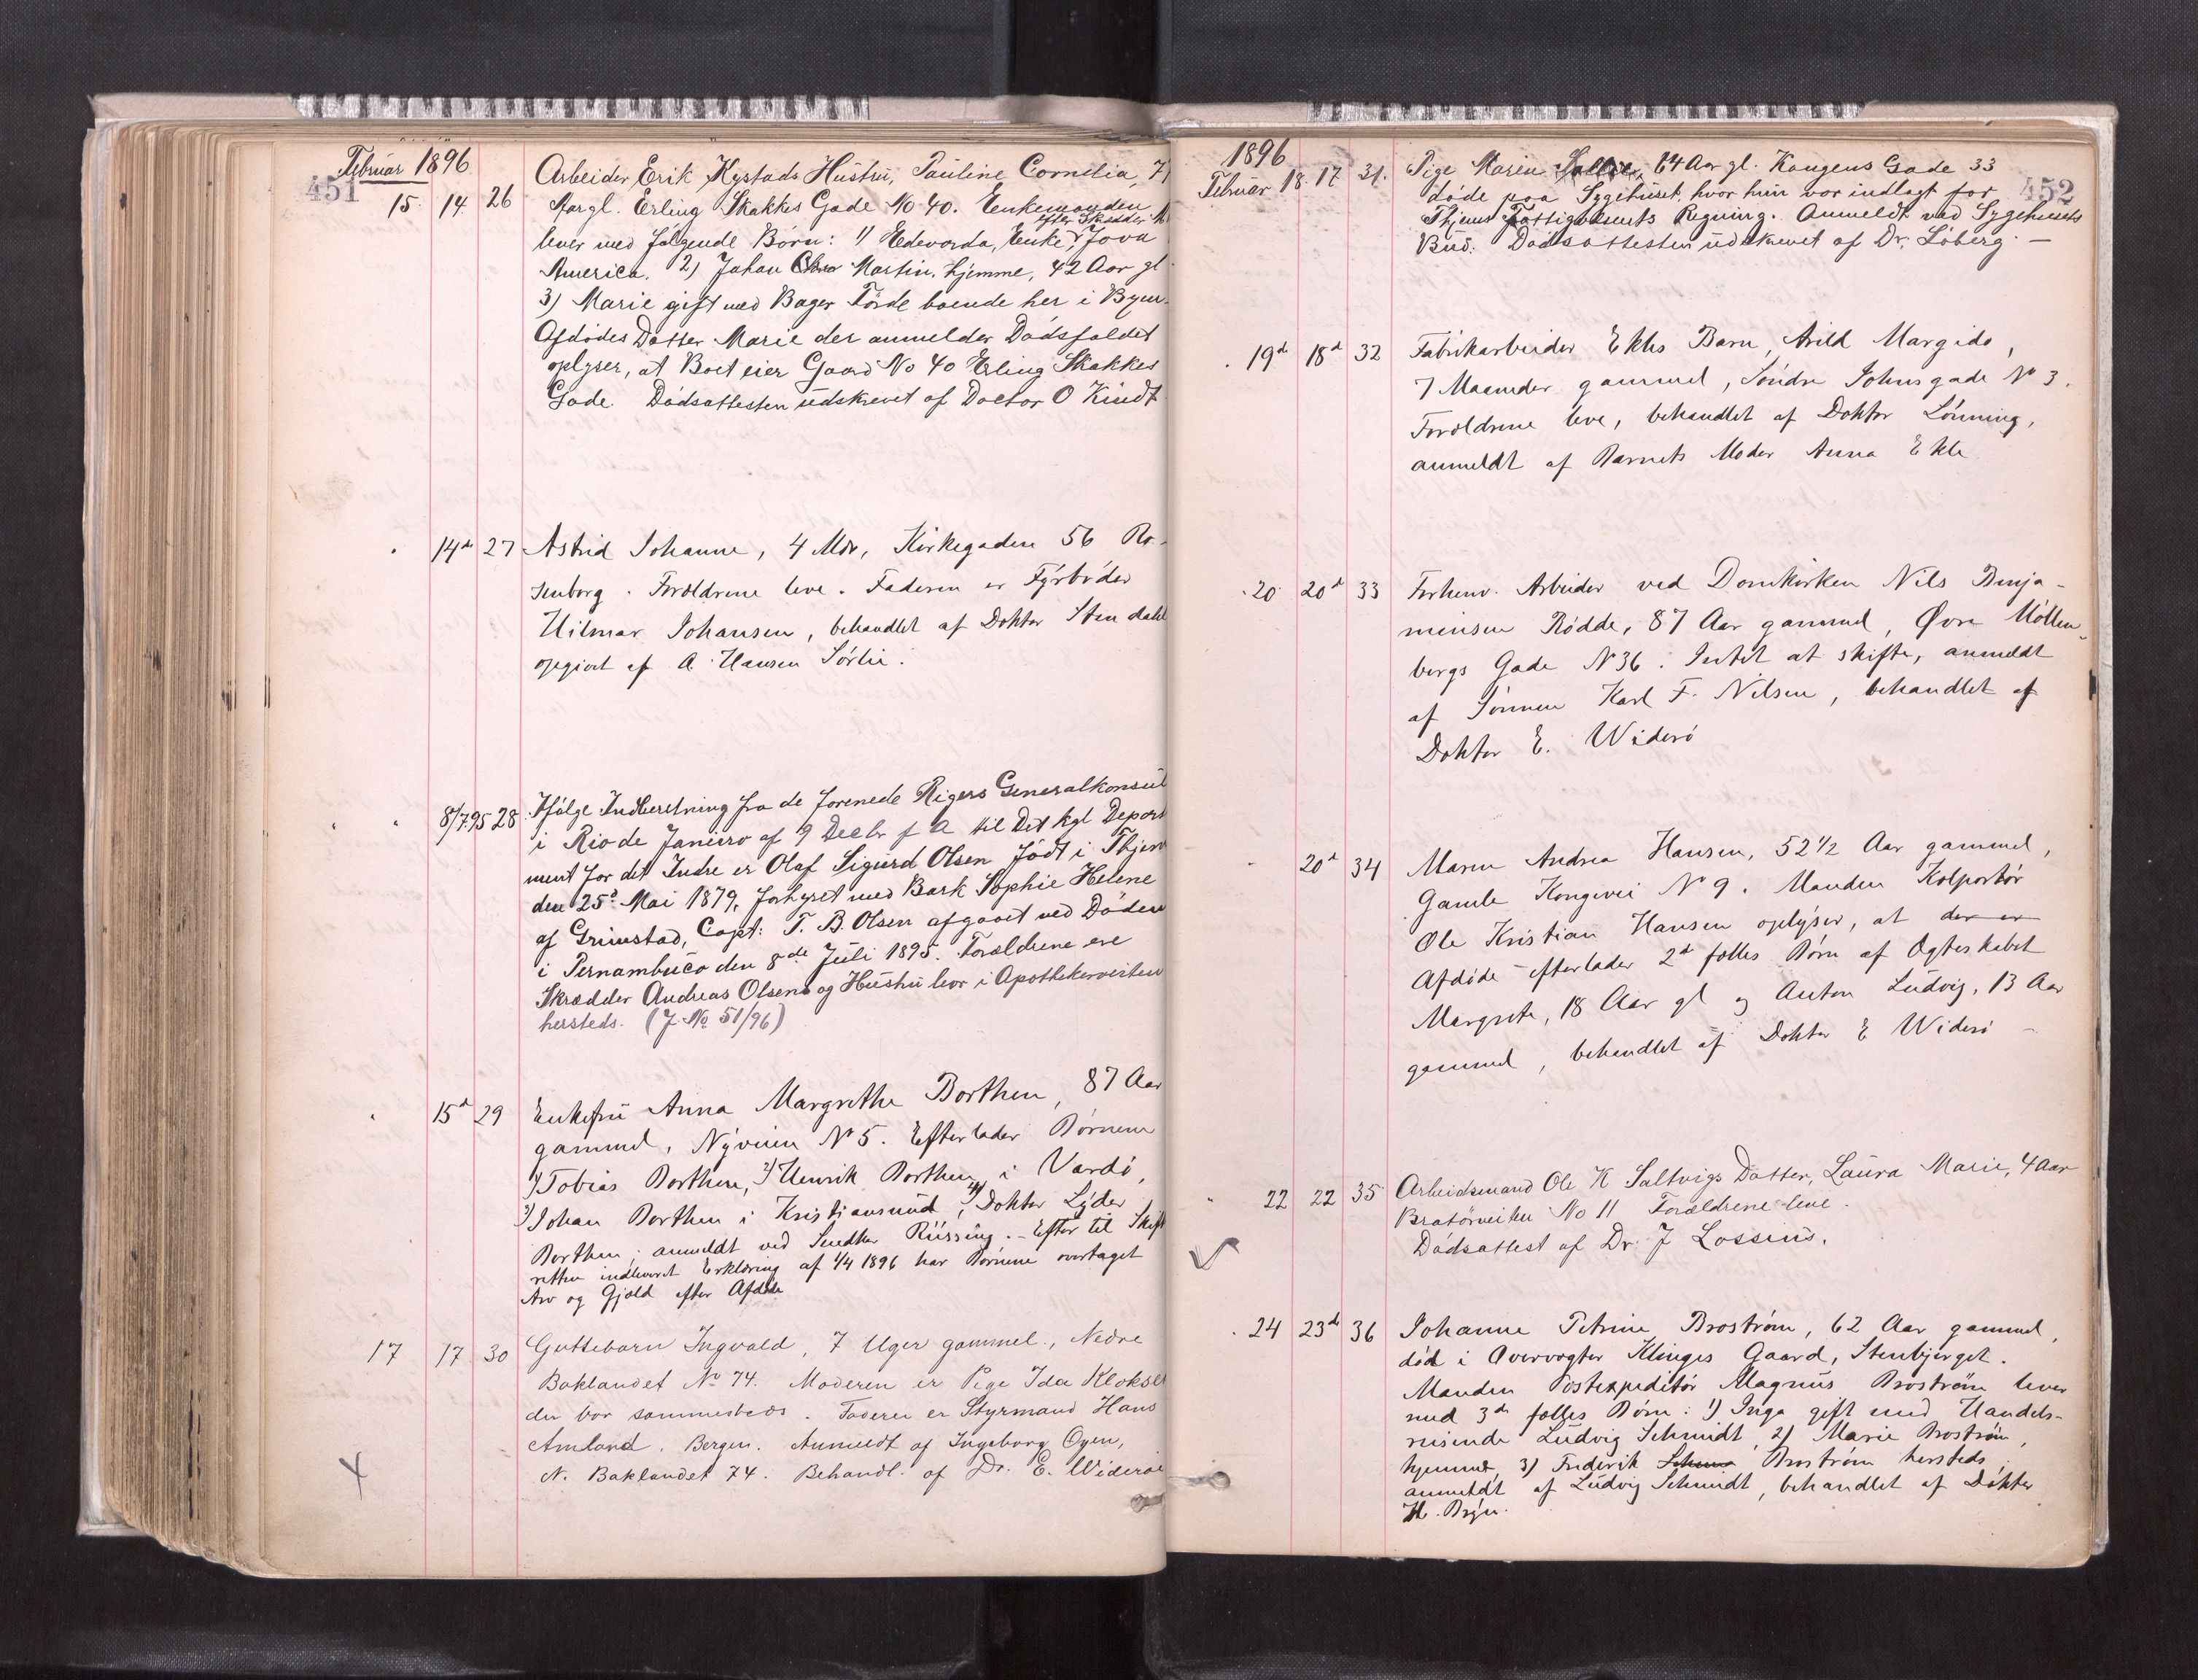 Februar 1896
451
15. 14. 26 Arbeider Erik Hystads Hustru, Pauline Cornelia, 71
Aargl. Erling Skakkes Gade No 40. Enkemanden
efter Skrædder
lever med følgende Børn: 1) Edevarda, Enke, Jova
America. 2) Johan Martin, hjemme, 42 Aar gl
3) Marie gift med Bager Förde boende her i Byen.
Afdödes Datter Marie der anmelder Dödsfaldet
oplyser, at Boet eier Gaard No 40 Erling Skakkes
Gade. Dödsattesten udskrevet af Doctor O Kindt
14de 27 Astrid Johanne, 4 Mdr, Kirkegaden 56 Ro-
senborg. Forældrene leve. Faderen er Fyrbøder
Hilmar Johansen, behandlet af Doktor Stendahl
opgivet af A. Hansen Sørlie.
8/7 95 28 Ifölge Indberetning fra de forenede Rigers Generalkonsul
i Rio de Janeiro af 9 Decbr f A til Det kgl Depart
ment for det Indre er Olaf Sigurd Olsen född i Thjem
den 25de Mai 1879, forhyret med Bark Sophie Helene
af Grimstad, Capt: T. B. Olsen afgaaet ved Döden
i Pernambuco den 8de Juli 1895. Forældrene ere
Skrædder Andreas Olsen og Hustru bor i Apothekerveiten
hersteds. (J. No 51/96)
15de 29 Enkefru Anna Margrethe Borthen, 87 Aar
gammel, Nyveien No 5. Efterlader Børnene
1) Tobias Borthen, 2) Henrik Borthen i Vardø,
3) Johan Borthen i Kristiansund, 4) Doktor Lyder
Borthen; anmeldt ved Snedker Rüssing. - Efter til Skift
retten indleveret Erklæring af 1/4 1896 har Børnene overtaget
Arv og Gjæld efter Afdøde
17 17 30 Guttebarn Ingvald, 7 Uger gammel., Nedre
Baklandet No 74. Moderen er Pige Ida Kloksel
der bor sammesteds. Faderen er Styrmand Hans
Amland, Bergen. Anmeldt af Ingeborg Oyen,
N. Baklandet 74. Behandl. af Dr. E. Widerøe
1896
452
Februar 18. 17 31. Pige Maren 64 Aar gl. Kongens Gade 33
døde paa Sygehuset, hvor hun var indlagt for
Thjems Fattigvæsents Regning. Anmeldt ved Sygehusets
Bud. Dødsattesten udskrevet af Dr. Löberg. —
19de 18de 32 Fabrikarbeider Ekles Barn, Arild Margido,
7 Maaneder gammel, Søndre Johnsgade No 3.
Forældrene leve, behandlet af Doktor Lønning,
anmeldt af Barnets Moder Anna Ekle
20 20de 33 Forhenv. Arbeider ved Domkirken Nils Benja-
minsen Rødde, 87 Aar gammel, Øvre Møllen-
bergs Gade No 36. Intet at skifte, anmeldt
af Sønnen Karl F. Nilsen, behandlet af
Doktor E. Widerö
20de 34 Maren Andrea Hansen, 52 1/2 Aar gammel,
Gamle Kongevei No 9. Manden Kolportør
Ole Kristian Hansen oplyser, at der er
Afdøde efterlader 2de fælles Børn af Ægteskabet
Margrete, 18 Aar gl og Anton Ludvig, 13 Aar
gammel, behandlet af Doktor E Widerö -
22 22 35 Arbeidsmand Ole K Saltvigs Datter, Laura Marie, 4 Aar
Bratörveiten No 11 Forældrene leve.
Dödsattest af Dr. J Lossius.
24 23de 36 Johanne Petrine Brostrøm, 62 Aar gammel,
død i Overvægter Klinges Gaard, Stenbjerget.
Manden Postexpeditør Magnus Brostrøm lever
med 3de fælles Børn: 1) Inga gift med Handels-
reisende Ludvig Schmidt, 2) Marie Brostrøm,
hjemme, 3) Frederik Brostrøm hersteds,
anmeldt af Ludvig Schmidt, behandlet af Doktor
H. Bryn.